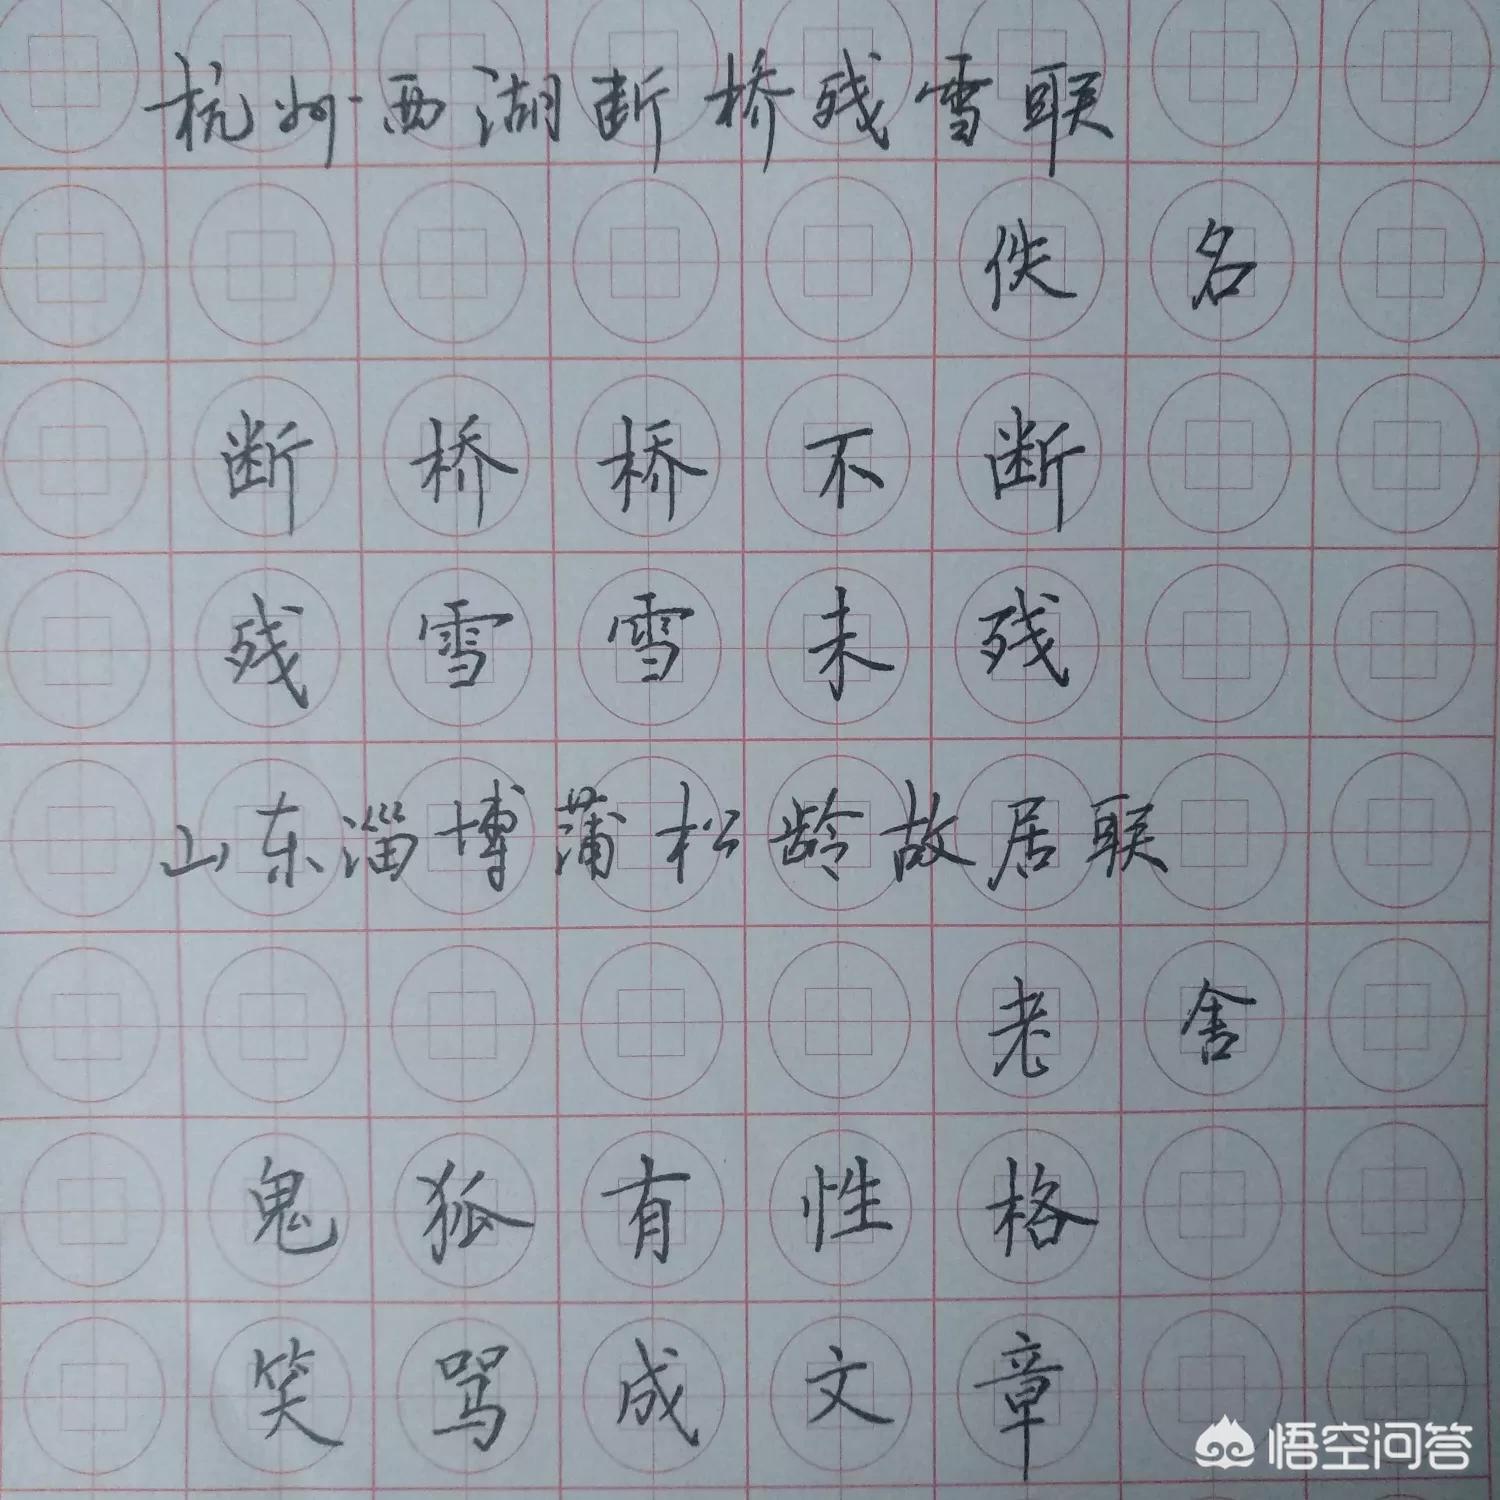 杭州西湖断桥残雪联
佚名
断桥桥不断
残雪雪未残
山东淄博蒲松龄故居联
老舍
鬼狐有性格
笑骂成文章
悟空问答